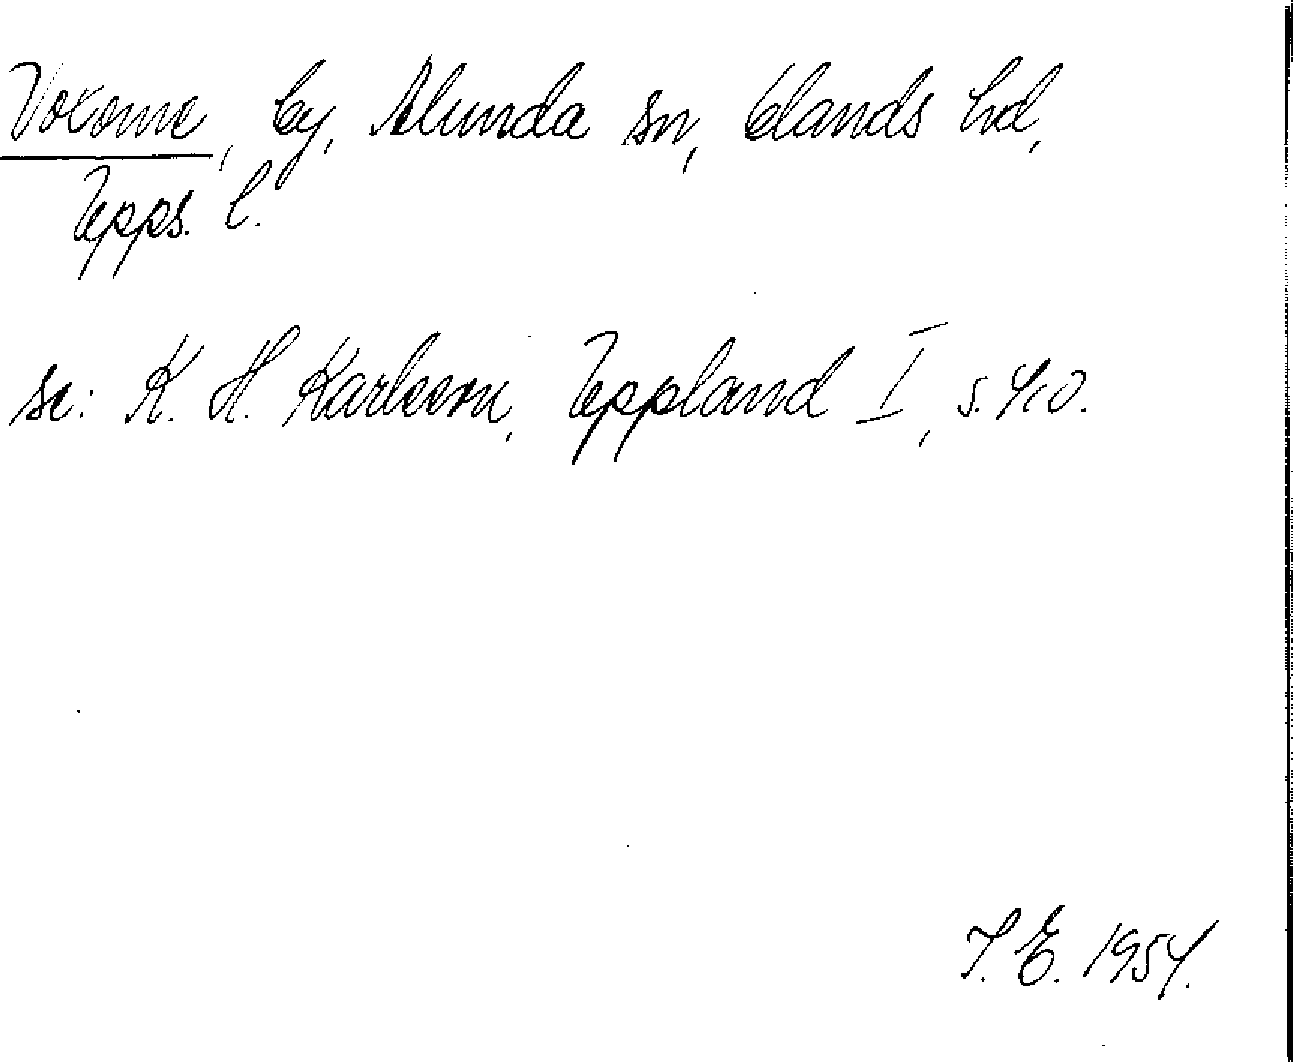 Voxome, by, Alunda sn, Olands hd,
Upps. l.
se: K. H. Karlsson, Uppland I, s. 410.
T. E. 1954.